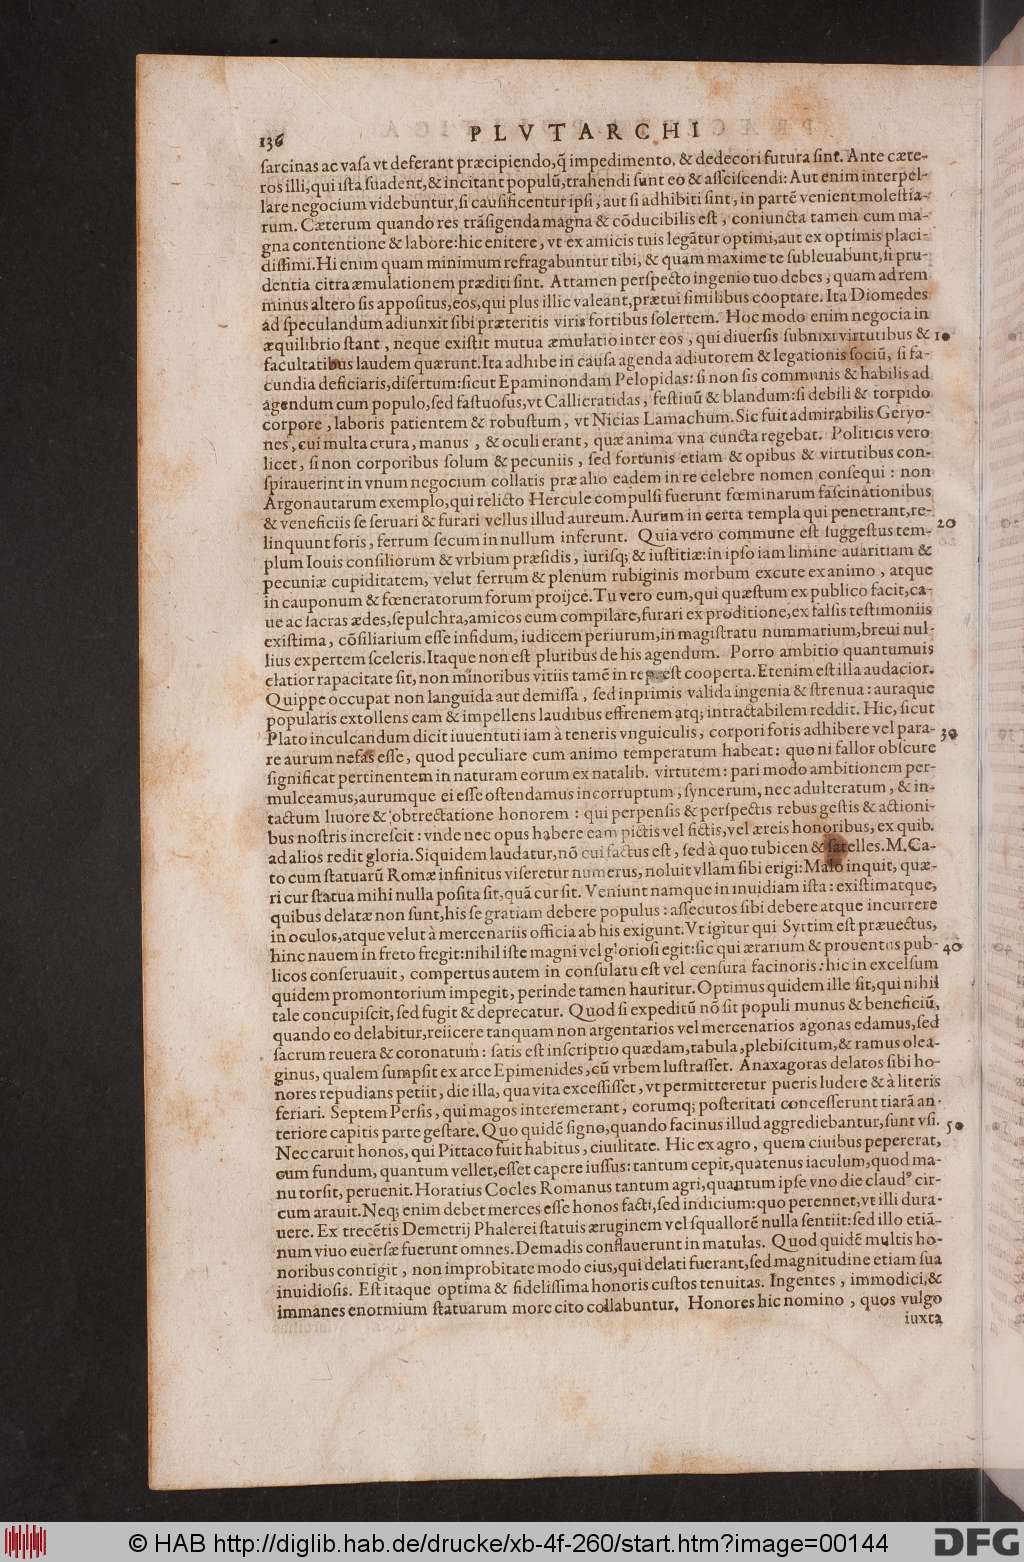 136 PLVTARCHI
sarcinas ac vasa vt deferant præcipiendo, q̃ impedimento, & dedecori futura sint. Ante cæte-
ros illi, qui ista suadent, & incitant populũ, trahendi sunt eo & assciscendi: Aut enim interpel-
lare negocium videbuntur, si causificentur ipsi, aut si adhibiti sint, in partẽ venient molestia-
rum. Cæterum quando res trãsigenda magna & cõducibilis est, coniuncta tamen cum ma-
gna contentione & labore: hic enitere, vt ex amicis tuis legãtur optimi, aut ex optimis placi-
dissimi. Hi enim quam minimum refragabuntur tibi, & quam maxime te subleuabunt, si pru-
dentia citra æmulationem præditi sint. Attamen perspecto ingenio tuo debes, quam ad rem
minus altero sis appositus, eos, qui plus illic valeant, præ tui similibus cooptare. Ita Diomedes
ad speculandum adiunxit sibi præteritis viris fortibus solertem. Hoc modo enim negocia in
æquilibrio stant, neque existit mutua æmulatio inter eos, qui diuersis subnixi virtutibus & 10
facultatibus laudem quærunt. Ita adhibe in causa agenda adiutorem & legationis sociũ, si fa-
cundia deficiaris, disertum: sicut Epaminondam Pelopidas: si non sis communis & habilis ad
agendum cum populo, sed fastuosus, vt Callicratidas, festiuũ & blandum: si debili & torpido
corpore, laboris patientem & robustum, vt Nicias Lamachum. Sic fuit admirabilis Geryo-
nes, cui multa crura, manus, & oculi erant, quæ anima vna cuncta regebat. Politicis vero
licet, si non corporibus solum & pecuniis, sed fortunis etiam & opibus & virtutibus con-
spirauerint in vnum negocium collatis præ alio eadem in re celebre nomen consequi: non
Argonautarum exemplo, qui relicto Hercule compulsi fuerunt fœminarum fascinationibus
& veneficiis se seruari & furari vellus illud aureum. Aurum in certa templa qui penetrant, re- 20
linquunt foris, ferrum secum in nullum inferunt. Quia vero commune est suggestus tem-
plum Iouis consiliorum & vrbium præsidis, iurisq; & iustitiæ: in ipso iam limine auaritiam &
pecuniæ cupiditatem, velut ferrum & plenum rubiginis morbum excute ex animo, atque
in cauponum & fœneratorum forum proijce. Tu vero eum, qui quæstum ex publico facit, ca-
ue ac sacras ædes, sepulchra, amicos eum compilare, furari ex proditione, ex falsis testimoniis
existima, cõsiliarium esse infidum, iudicem periurum, in magistratu nummarium, breui nul-
lius expertem sceleris. Itaque non est pluribus de his agendum. Porro ambitio quantumuis
elatior rapacitate sit, non minoribus vitiis tamẽ in rep. est cooperta. Etenim est illa audacior.
Quippe occupat non languida aut demissa, sed inprimis valida ingenia & strenua: auraque
popularis extollens eam & impellens laudibus effrenem atq; intractabilem reddit. Hic, sicut
Plato inculcandum dicit iuuentuti iam à teneris vnguiculis, corpori foris adhibere vel para- 30
re aurum nefas esse, quod peculiare cum animo temperatum habeat: quo ni fallor obscure
significat pertinentem in naturam eorum ex natalib. virtutem: pari modo ambitionem per-
mulceamus, aurumque ei esse ostendamus incorruptum, syncerum, nec adulteratum, & in-
tactum liuore & obtrectatione honorem: qui perpensis & perspectis rebus gestis & actioni-
bus nostris increscit: vnde nec opus habere eam pictis vel fictis, vel æreis honoribus, ex quib.
ad alios redit gloria. Siquidem laudatur, nõ cui factus est, sed à quo tubicen & satelles. M. Ca-
to cum statuarũ Romæ infinitus viseretur numerus, noluit vllam sibi erigi: Malo inquit, quæ-
ri cur statua mihi nulla posita sit, quã cur sit. Veniunt namque in inuidiam ista: existimatque,
quibus delatæ non sunt, his se gratiam debere populus: assecutos sibi debere atque incurrere
in oculos, atque velut à mercenariis officia ab his exigunt. Vt igitur qui Syrtim est præuectus,
hinc nauem in freto fregit: nihil iste magni vel gloriosi egit: sic qui ærarium & prouentus pub- 40
licos conseruauit, compertus autem in consulatu est vel censura facinoris: hic in excelsum
quidem promontorium impegit, perinde tamen hauritur. Optimus quidem ille sit, qui nihil
tale concupiscit, sed fugit & deprecatur. Quod si expeditũ nõ sit populi munus & beneficiũ,
quando eo delabitur, reiicere tanquam non argentarios vel mercenarios agonas edamus, sed
sacrum reuera & coronatum: satis est inscriptio quædam, tabula, plebiscitum, & ramus olea-
ginus, qualem sumpsit ex arce Epimenides, cũ vrbem lustrasset. Anaxagoras delatos sibi ho-
nores repudians petiit, die illa, qua vita excessisset, vt permitteretur pueris ludere & à literis
feriari. Septem Persis, qui magos interemerant, eorumq; posteritati concesserunt tiarã an-
teriore capitis parte gestare. Quo quidẽ signo, quando facinus illud aggrediebantur, sunt vsi. 50
Nec caruit honos, qui Pittaco fuit habitus, ciuilitate. Hic ex agro, quem ciuibus pepererat,
cum fundum, quantum vellet, esset capere iussus: tantum cepit, quatenus iaculum, quod ma-
nu torsit, peruenit. Horatius Cocles Romanus tantum agri, quantum ipse vno die claudꝰ cir-
cum arauit. Neq; enim debet merces esse honos facti, sed indicium: quo perennet, vt illi dura-
uere. Ex trecẽtis Demetrij Phalerei statuis æruginem vel squallorẽ nulla sentiit: sed illo etiã-
num viuo euersæ fuerunt omnes. Demadis conflauerunt in matulas. Quod quidẽ multis ho-
noribus contigit, non improbitate modo eius, qui delati fuerant, sed magnitudine etiam sua
inuidiosis. Est itaque optima & fidelissima honoris custos tenuitas. Ingentes, immodici, &
immanes enormium statuarum more cito collabuntur. Honores hic nomino, quos vulgo
iuxta
© HAB http://diglib.hab.de/drucke/xb-4f-260/start.htm?image=00144
DFG